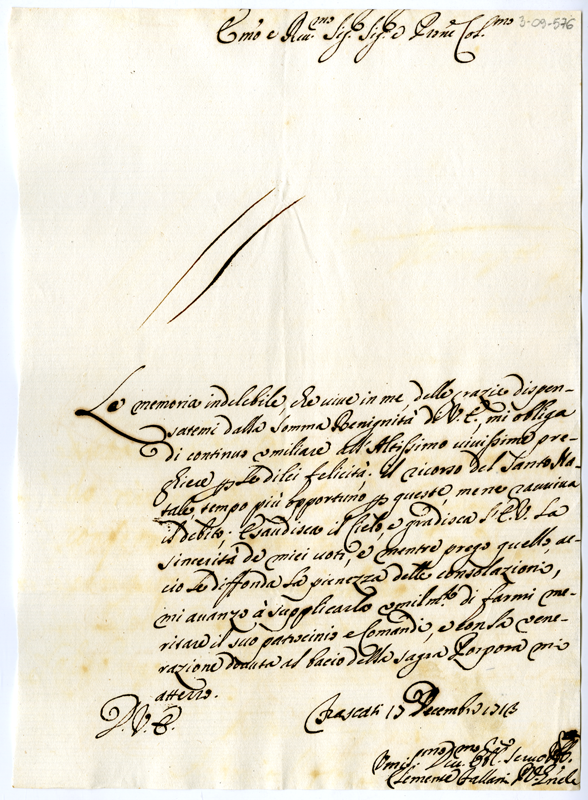 Emo e Reu.mo Sig.r Sig.r e Prone Col.mo
3-09-576
La memoria indelebile che viue in me delle grazie dispen-
satemi dalla somma Benignità di V. E. mi obliga
di continuo umiliare all' Altissimo viuissime pre-
ghiere p le di lei felicità. Il ricorso del Santo Na-
tale, tempo più opportuno p queste me ne rauuiua
il debito. Esaudisca il Cielo, e gradisca l'E.V. la
sincerità de miei uoti, e mentre prego quello, ac-
ciò le diffonda la pienezza delle consolazioni,
mi auanzo à supplicarla umilm.te di farmi me-
ritare il suo patrocinio e Comandi, e con la vene-
razione douuta al bacio della sagra Porpora mi
atterro.
D. V. E.
Frascati 17 Decembre 1713
Seruo
Clemente